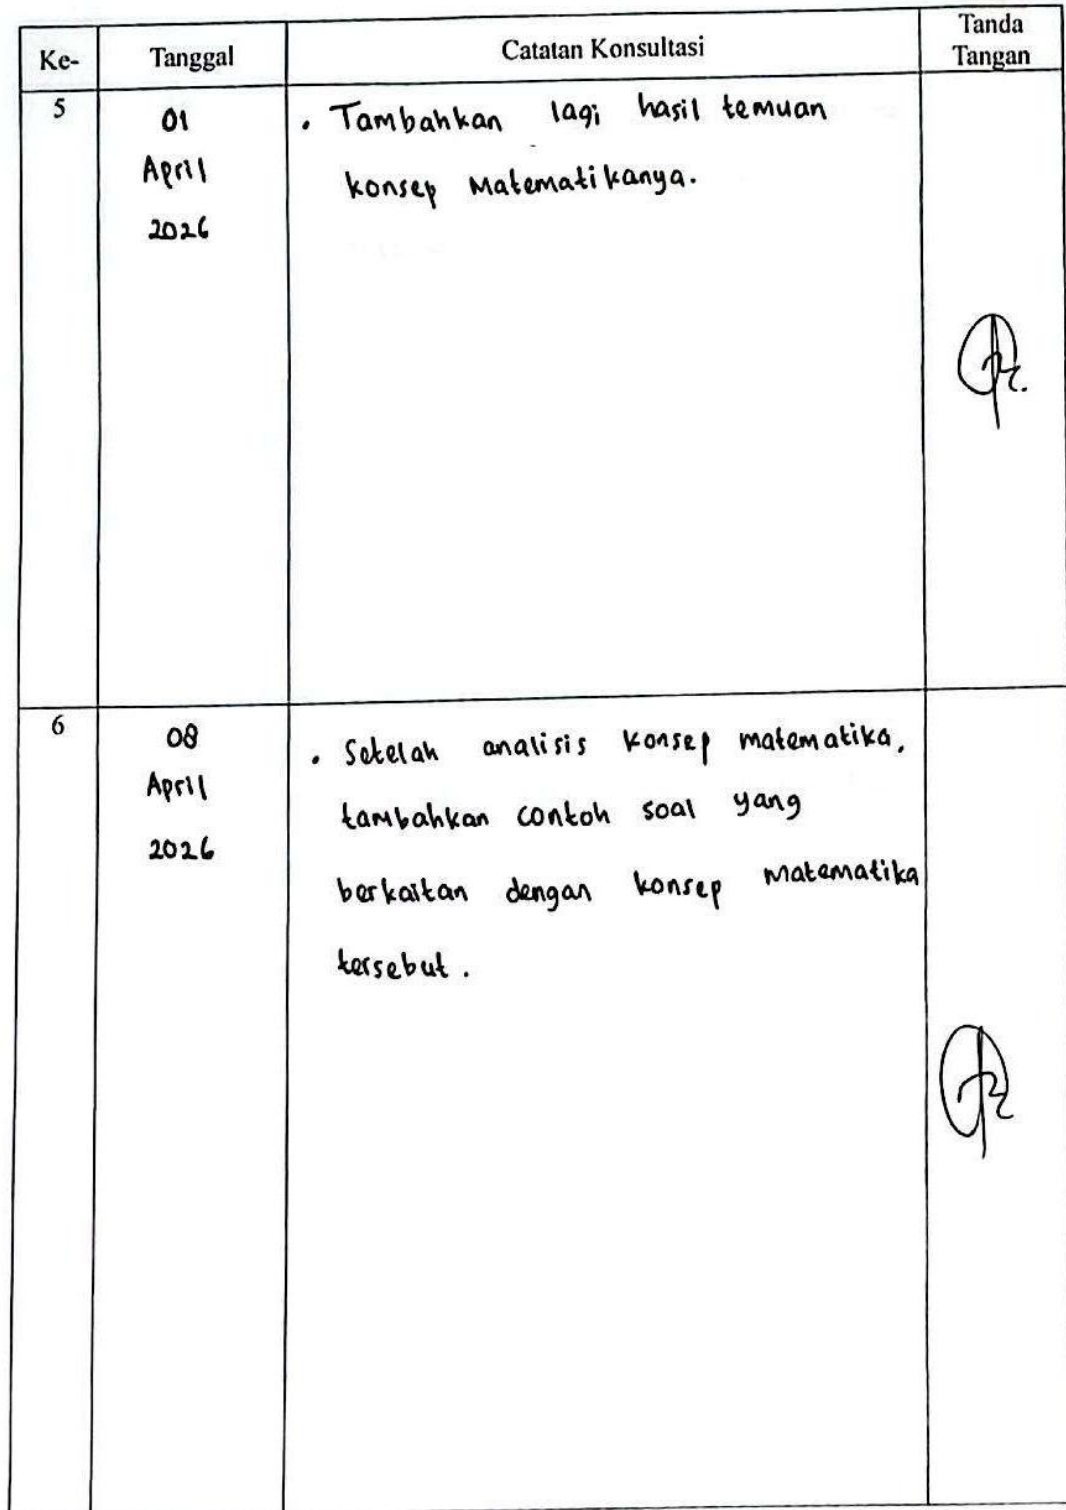 Ke-
Tanggal
Catatan Konsultasi
Tanda
Tangan
5
01
April
2026
. Tambahkan lagi hasil temuan
konsep Matematikanya.
6
08
April
2026
. Setelah analisis konsep matematika,
tambahkan contoh soal yang
berkaitan dengan konsep matematika
tersebut.